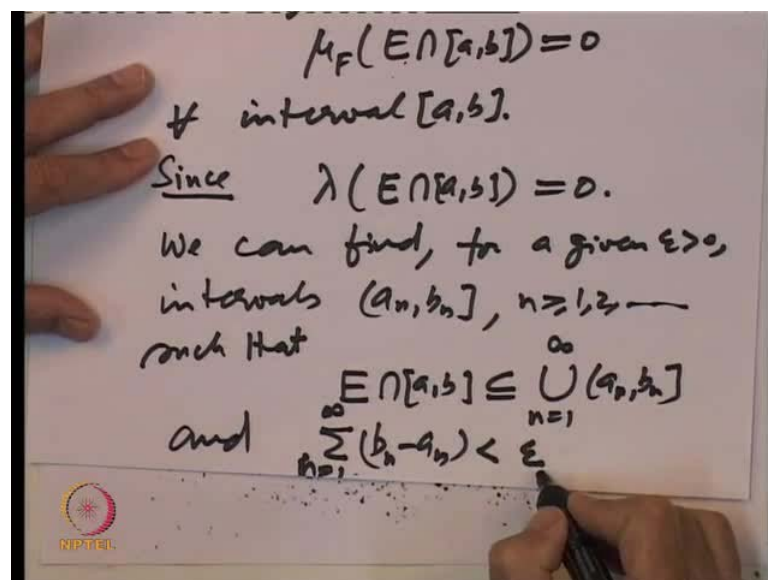 μ_F(E∩[a,b])=0
∀ interval [a,b].
Since λ(E∩[a,b])=0.
We can find, for a given ε>0,
intervals (a_n, b_n], n≥1,2,—
such that
E∩[a,b] ⊆ ∞⋃n=1 (a_n, b_n]
and ∞∑n=1 (b_n-a_n) < ε
NPTEL